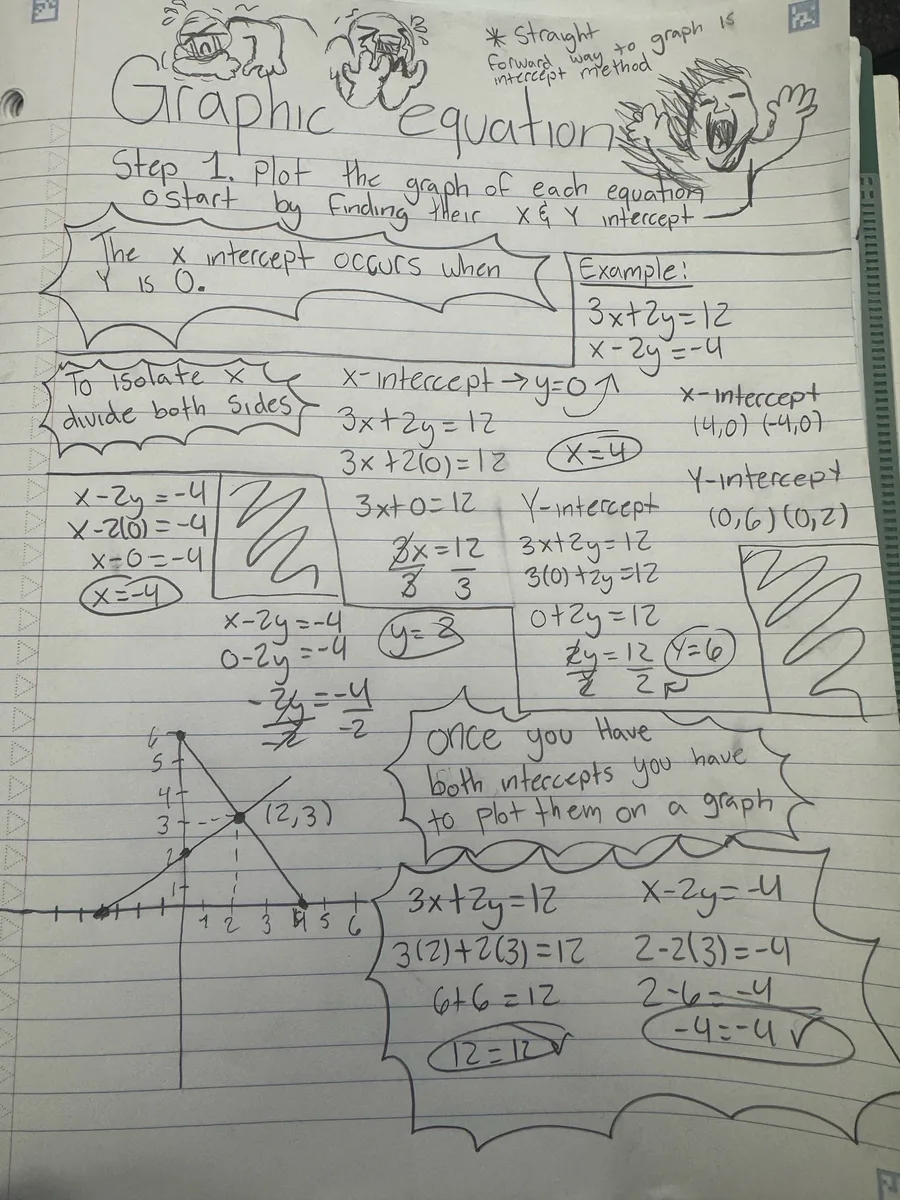 * Straight
forward way to graph is
intercept method
Graphic equation
Step 1. Plot the graph of each equation
o start by finding their X & Y intercept
The x intercept occurs when
Y is 0.
Example:
3x+2y=12
x-2y=-4
To isolate x
divide both sides
x-intercept → y=0
3x+2y=12
3x+2(0)=12
3x+0=12
3x=12
3 3
x=4
x-intercept
(4,0) (-4,0)
Y-intercept
(0,6) (0,2)
x-2y=-4
x-2(0)=-4
x-0=-4
x=-4
Y-intercept
3x+2y=12
3(0)+2y=12
0+2y=12
2y=12
2 2
Y=6
x-2y=-4
0-2y=-4
-2y=-4
-2 -2
y=2
once you Have
both intercepts you have
to plot them on a graph
6
5
4
3
2
1
(2,3)
1 2 3 4 5 6
3x+2y=12
3(2)+2(3)=12
6+6=12
12=12 ✓
x-2y=-4
2-2(3)=-4
2-6=-4
-4=-4 ✓